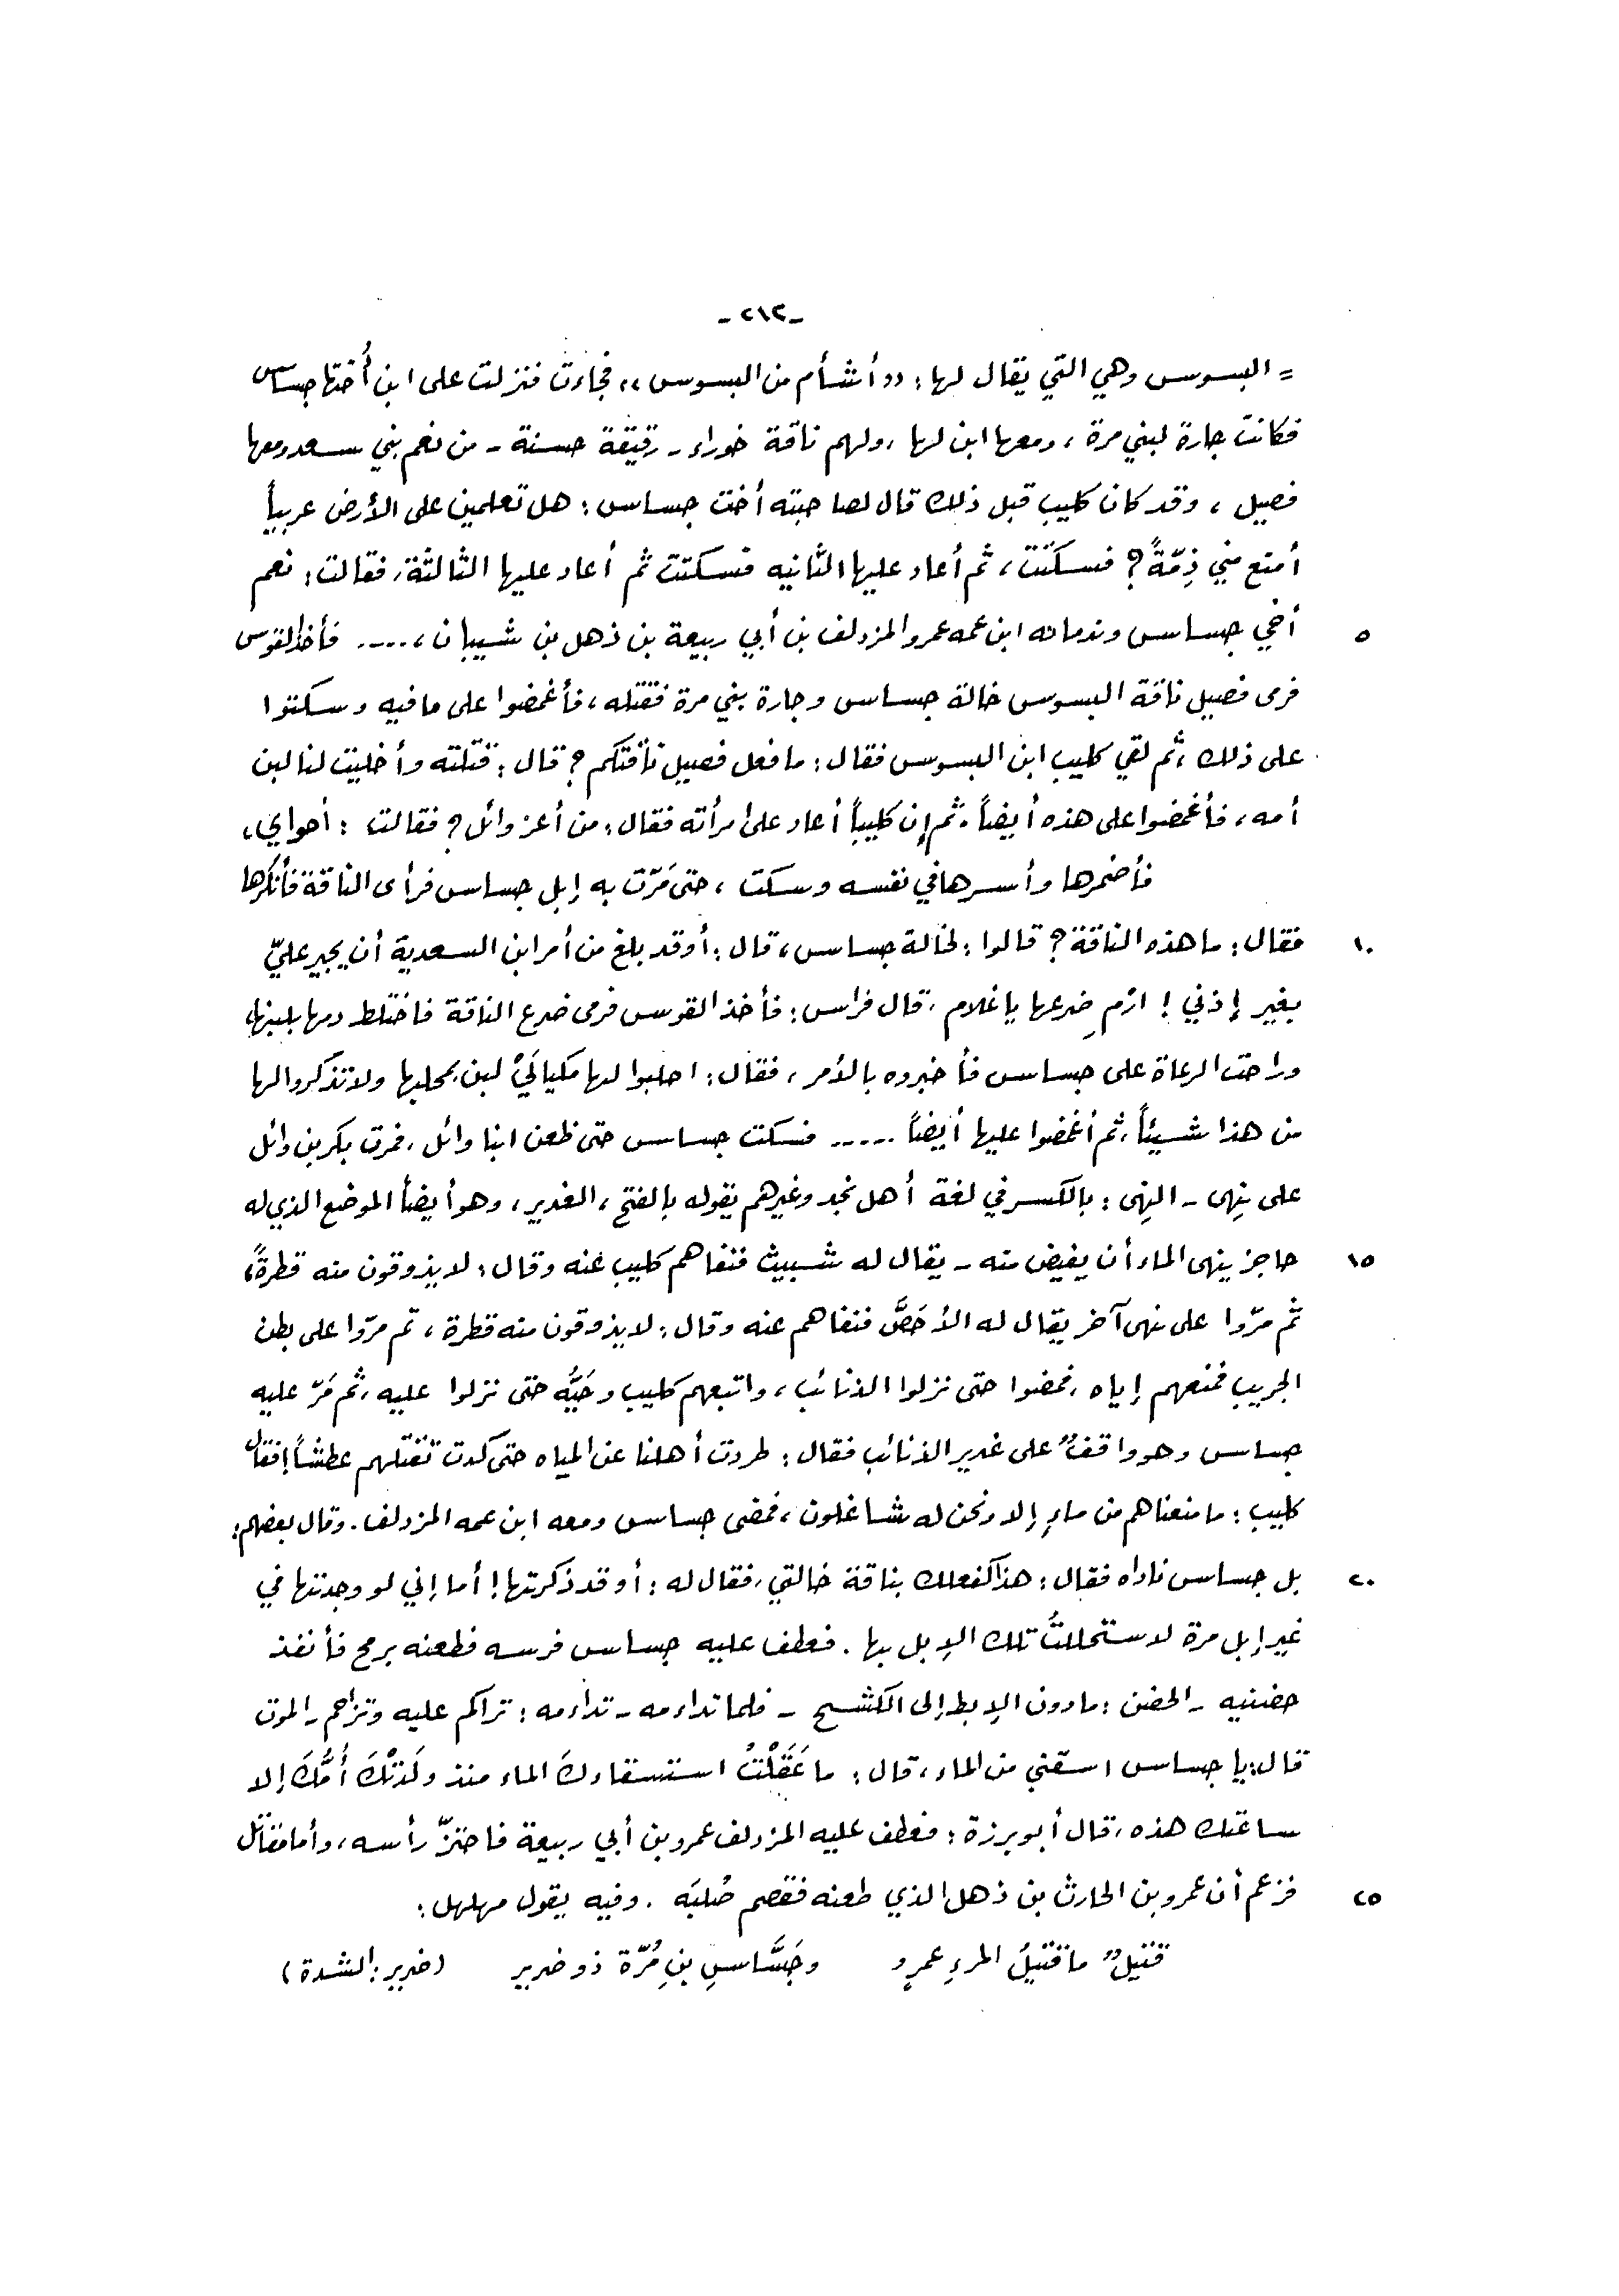 -٢١٣-
= البسوس وهي التي يقال لها: ,,أشأم من البسوس,, فجاءت فنزلت على ابن أُختها جساس
فكانت جارة لبني مرة، ومعها ابن لها، ولهم ناقة خوراء- رقيقة حسنة- من نعم بني سعد ومعها
فصيل، وقد كان كليب قبل ذلك قال لصاحبته أخت جساس: هل تعلمين على الأرض عربياً
أمنع مني ذِمّةً؟ فسكَتَتْ، ثم أعاد عليها الثانيه فسكتت ثم أعاد عليها الثالثة، فقالت: نعم
٥ أخي جساس وندمانه ابن عمه عمرو المزدلف بن أبي ربيعة بن ذهل بن شيبان،.... فأخذ القوس
فرمى فصيل ناقة البسوس خالة جساس وجارة بني مرة فقتله، فأغمضوا على ما فيه وسكتوا
على ذلك، ثم لقي كليب ابن البسوس فقال: ما فعل فصيل ناقتكم؟ قال: قتلته وأخليت لنا لبن
أمه، فأغمضوا على هذه أيضاً. ثم إن كليباً أعاد على امرأته فقال: من أعز وائل؟ فقالت: أخواي،
فأضمرها وأسرها في نفسه وسكت، حتى مَرّت به إبل جساس فرأى الناقة فأنكرها
١٠ فقال: ما هذه الناقة؟ قالوا: لخالة جساس، قال: أوقد بلغ من أمر ابن السعدية أن يجير عليّ
بغير إذني! ارْمِ ضرعها يا غلام، قال فراس: فأخذ القوس فرمى ضرع الناقة فاختلط دمها بلبنها،
وراحت الرعاة على جساس فأخبروه بالأمر، فقال: احلبوا لها مكيالَيْ لبن بمحلبها ولا تذكروا لها
من هذا شيئاً، ثم أغمضوا عليها أيضاً ..... فسكت جساس حتى ظعن ابنا وائل، فمرت بكر بن وائل
على نِهى- النِهى: بالكسر في لغة أهل نجد وغيرهم يقوله بالفتح، الغدير، وهو أيضاً الموضع الذي له
١٥ حاجز ينهى الماء أن يفيض منه- يقال له شبيث فنفاهم كليب عنه وقال: لا يذوقون منه قطرةً،
ثم مرّوا على نهى آخر يقال له الأحَصَّ فنفاهم عنه وقال: لا يذوقون منه قطرة، ثم مرّوا على بطن
الجريب فمنعهم إياه، فمضوا حتى نزلوا الذنائب، واتبعهم كليب وحَيُّه حتى نزلوا عليه، ثم مَرّ عليه
جساس وهو واقفٌ على غدير الذنائب فقال: طردت أهلنا عن المياه حتى كدت تقتلهم عطشاً! فقال
كليب: ما منعناهم من ماءٍ إلا ونحن له شاغلون، فمضى جساس ومعه ابن عمه المزدلف. وقال بعضهم:
٢٠ بل جساس ناداه فقال: هذا كفعلك بناقة خالتي، فقال له: أوقد ذكرتها! أما إني لو وجدتها في
غير إبل مرة لاستحللتُ تلك الإبل بها. فعطف عليه جساس فرسه فطعنه برمح فأنفذ
حضنيه- الحضن: ما دون الإبط إلى الكشح- فلما تداءمه- تداءمه: تراكم عليه وتزاحم- الموت
قال: يا جساس اسقني من الماء، قال: ما عَقَلْتُ استسقاءكَ الماء منذ ولَدَتْكَ أُمُّكَ إلا
ساعتك هذه، قال أبو برزة: فعطف عليه المزدلف عمرو بن أبي ربيعة فاحتزّ رأسه، وأما مقاتل
٢٥ فزعم أن عمرو بن الحارث بن ذهل الذي طعنه فقصم صُلبَه. وفيه يقول مهلهل:
قتيلٌ ما قتيلُ المرءِ عمرٍو وجَسَّاسِ بنِ مُرّة ذو ضرير (ضرير: الشدة)